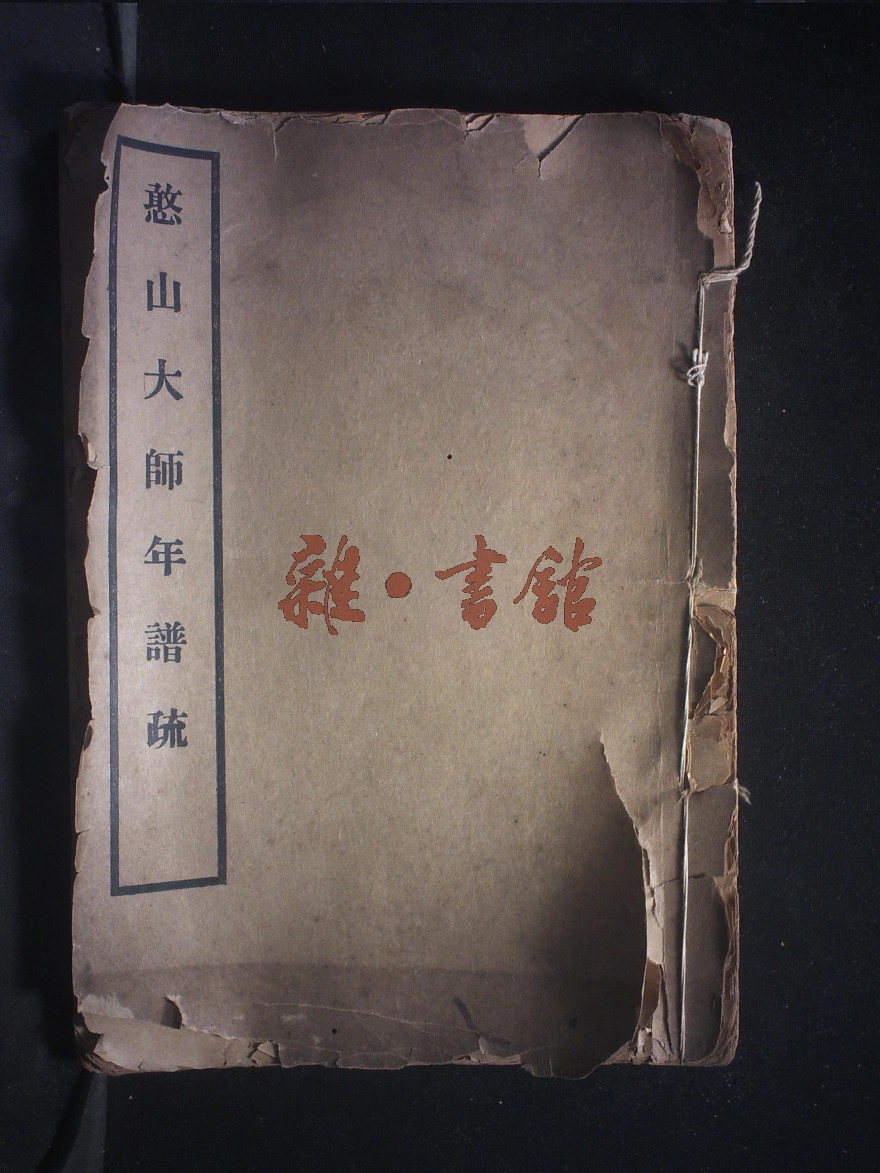 憨山大師年譜疏
雜·書館